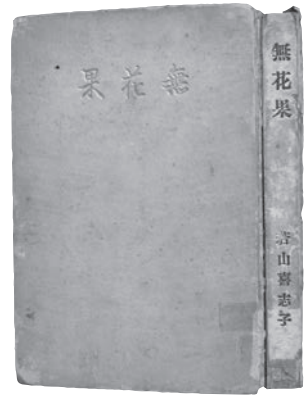 無花果
無花果
若山喜志子